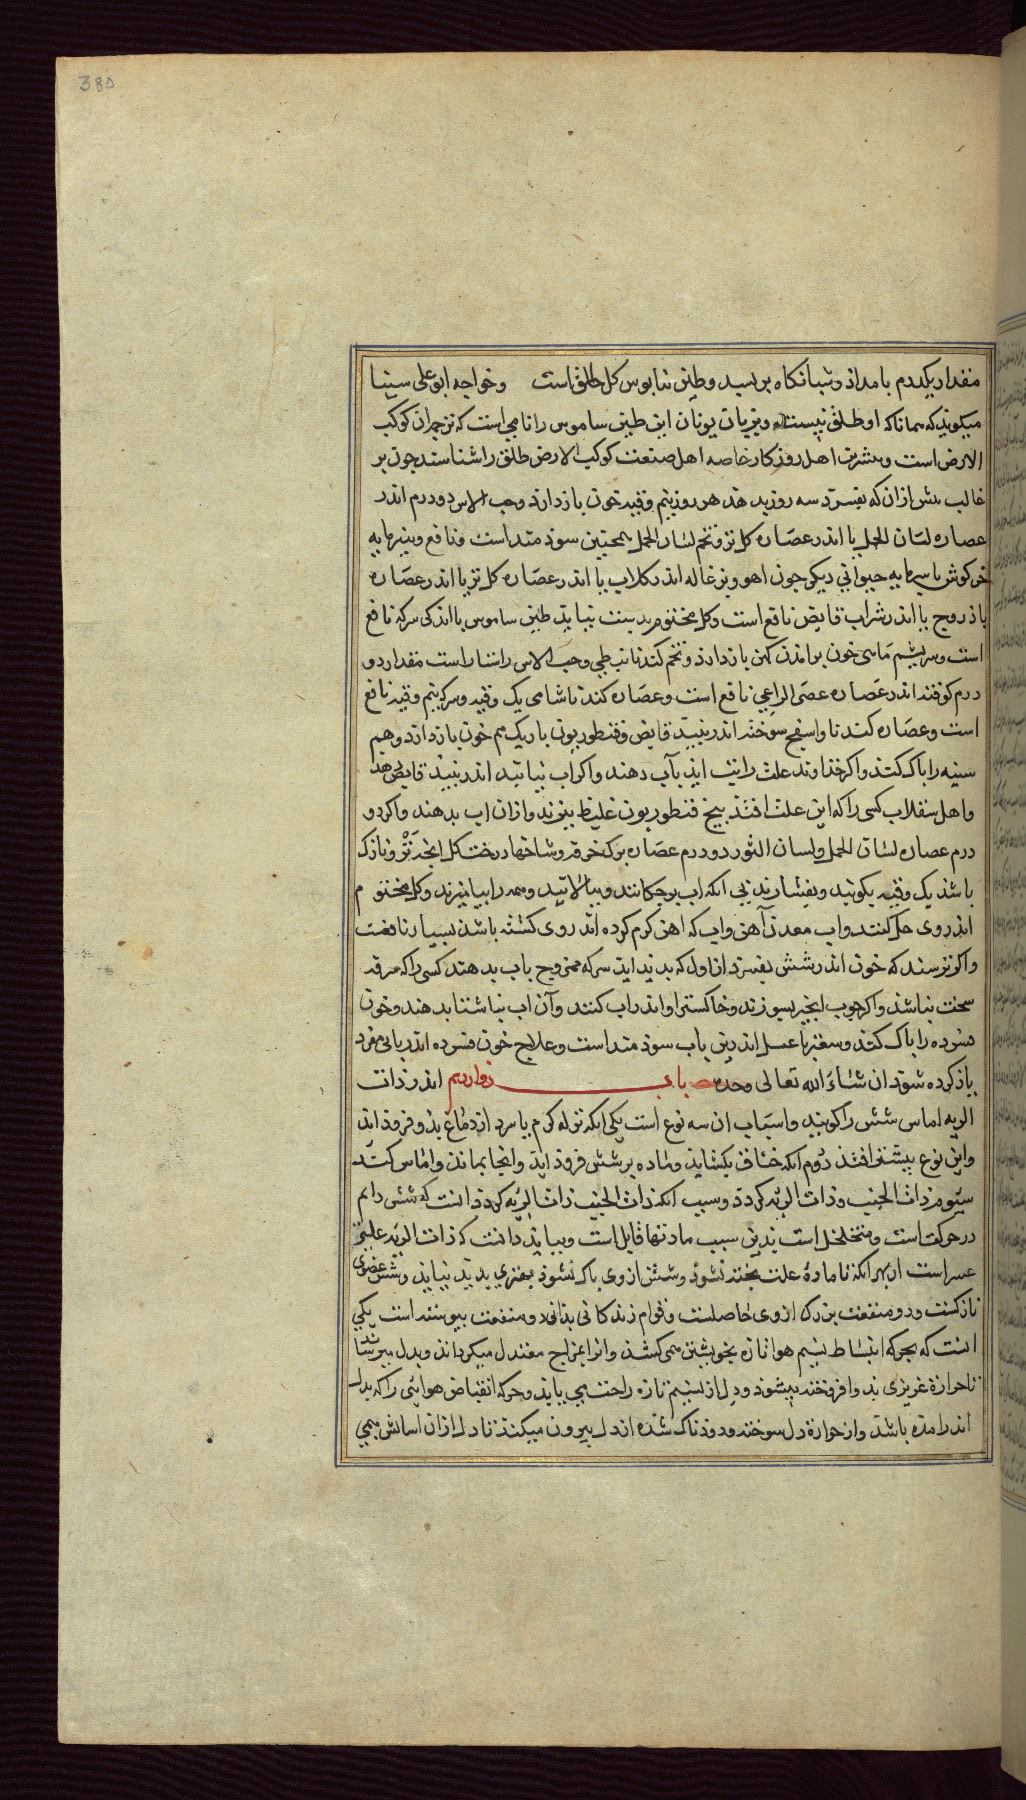 385
مقدار یکدرم بامداد و شبانکاه بر اسید و طین شابوس کل طلق است وخواجه ابو علی سینا
میکوید که همانا که او طلق نیست و بزبان یونان این طین ساموس را نامی است که ترجمۀ آن کوکب
الارض است و بیشترین اهل روزکار خاصه اهل صنعت کوکب الارض طلق را شناسند چون بر
غالب پیش ازان که بفسرد سه روز بدهند هر روز نیم وقیه خون بازدارد وحب الاس دو درم اندر
عصاره لسان الحمل یا اندر عصاره کل تر و تخم لسان الحمل همچنین سوذ مند است و نافع و پنیرمایه
خرکوش یا پنیرمایه حیوانی دیکر چون اهو و بزغاله اندر کلاب یا اندر عصاره کل تر یا اندر عصاره
باذروج یا اندر شراب قابض نافع است وکل مختوم بدست نیاید طین ساموس با اندکی سرکه نافع
است و سریشم ماهی خون برامدن کهن بازدارد و تخم کندنا نبطی وحب الاس راستا راست مقدار دو
درم کوفته اندر عصاره عصی الراعی نافع است و عصاره کندنا شامی یک وقیه و سرکه نیم وقیه نافع
است و عصاره کندنا و اسفنج سوخته اندر نبیذ قابض و قنطوریون باریک هم خون بازدارد و هم
سینه را پاک کند و اکر خداوند علت را تب اید بآب دهند و اکر تب نیاید اندر نبیذ قابض دهند
و اهل سقلاب کسی را که این علت افتذ بیخ قنطوریون غلیظ بپزند و ازان اب بدهند و اکر دو
درم عصاره لسان الحمل و لسان الثور دو درم عصاره برک خرفه و شاخهاء درخت کل انجه تر و نازک
باشذ یک وقیه بکوبند و بفشارند بی انکه اب بروچکانند و بپالایند و همه را بیامیزند و کل مختوم
اندر وی حل کنند و اب معدن آهن و اب که اهن کرم کرده اندر وی کشته باشند بسیار نافعست
و اکر ترسند که خون اندر شش بفسرد از اول که بدید اید سرکه ممزوج باب بدهند کسی را که سرفه
سخت نباشد و اکر چوب انجیر بسوزند و خاکستر او اندر اب کنند و آن اب بناشتا بدهند و خون
فسرده را پاک کند و سعتر با عسل اندرین باب سوذ مند است و علاج خون فسرده اندر بابی مفرد
یاذ کرده شوذ ان شاء الله تعالی وحده باب دوازدهم اندر ذات
الریه اماس شش را کویند و اسباب ان سه نوع است یکی انکه نزله کرم یا سرد از دماغ بدو فرود اید
و این نوع بیشتر افتد دوم انکه خناق بکشاید و ماده بر شش فرود اید و انجا بماند و اماس کند
سیوم ذات الجنب و ذات الریه کردد و سبب انکه ذات الجنب ذات الریه کردد انست که شش دایم
در حرکت است و متخلخل است بدین سبب مادتها قابل است و بباید دانست که ذات الریه علتی
عسر است ان بهر انکه تا ماده علت پخته نشوذ و شش از وی پاک نشوذ بهتری بدید نیاید و شش عضوی
نازکست و دو منفعت بزرک از وی حاصلست و قوام زندکانی بدان دو منفعت پیوسته است یکی
انست که بحرکه انبساط نسیم هوا تازه بخویشتن همی کشد و انرا بمزاج معتدل میکرداند و بدل میرساند
تا حرارة غریزی بدو افروخته میشود و دل از نسیم تازه راحت می یابد و حرکة انقباض هوایی را که بدل
اندر امده باشد و از حرارة دل سوخته و دودناک شده از دل بیرون میکند تا دل ازان اسایش همی